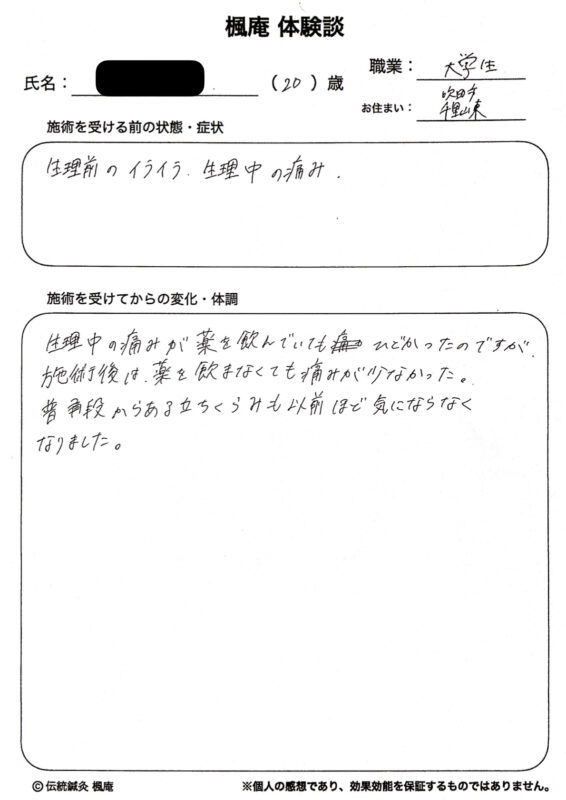 楓庵 体験談
氏名： （20）歳
職業： 大学生
お住まい： 吹田市
千里山東
施術を受ける前の状態・症状
生理前のイライラ、生理中の痛み．
施術を受けてからの変化・体調
生理中の痛みが薬を飲んでいても ひどかったのですが、
施術後は、薬を飲まなくても痛みが少なかった。
普段からある立ちくらみも以前ほど気にならなく
なりました。
©伝統鍼灸 楓庵
※個人の感想であり、効果効能を保証するものではありません。